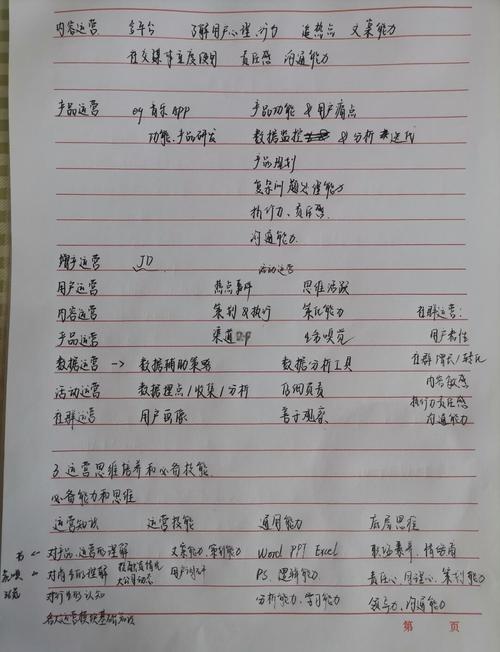 内容运营 多平台 了解用户心理、行为 追热点 文案能力
社交媒体重度使用 责任感 沟通能力
产品运营 eg 音乐App 产品功能 & 用户痛点
功能、产品研发 数据监控 & 分析 迭代
产品规划
复杂问题处理能力
执行力、责任感
沟通能力
增长运营 JD 活动运营
用户运营 热点事件 思维活跃 社群运营:
内容运营 策划 & 执行 策划能力 用户粘性
产品运营 渠道 生活嗅觉 社群增长/转化
数据运营 -> 数据辅助策略 数据分析工具 内容敏感
活动运营 数据埋点/收集/分析 认真负责 执行力责任感
社群运营 用户画像 善于观察 沟通能力
3 运营思维培养和必备技能
必备能力和思维
运营知识 运营技能 通用能力 底层思维
书 <- 对产品、运营的理解 文案能力、策划能力 Word PPT Excel 职场素养、情绪商
<- 对内容的理解 大公司动态 用户调研 PS、逻辑能力 责任心、同理心、策划能力
对行业的认知 分析能力、学习能力 领导力、沟通能力
各大运营模块基础知识
第 页